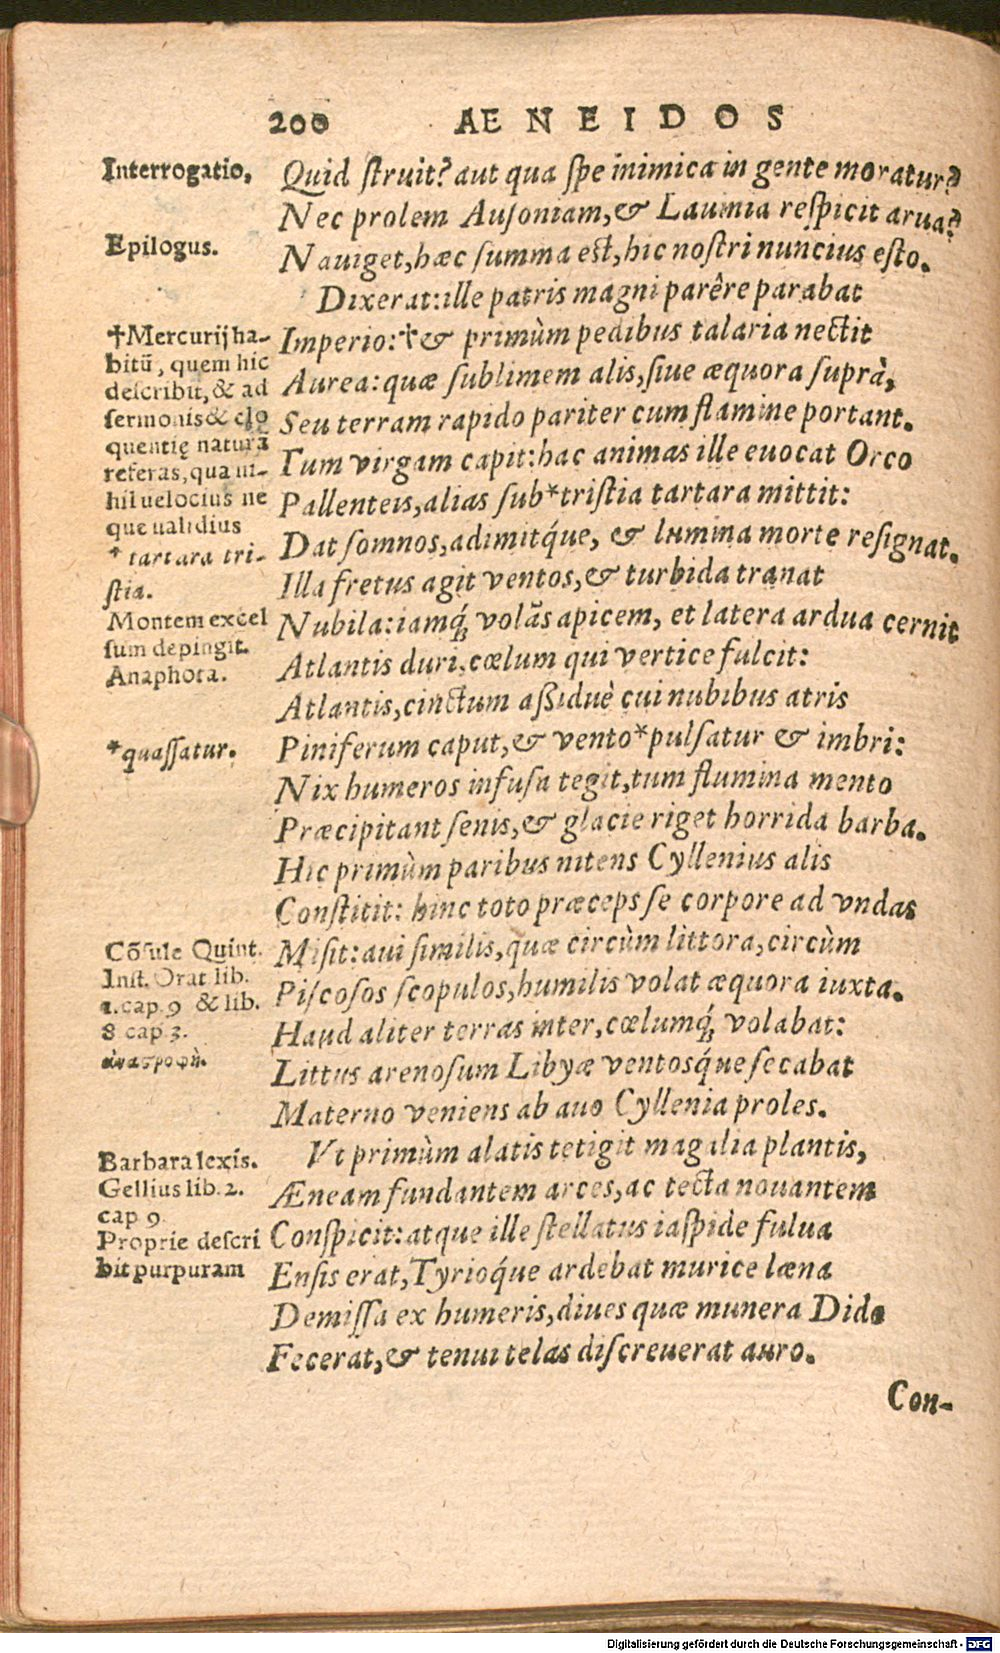 200 AENEIDOS
Interrogatio,
Quid struit? aut qua spe inimica in gente moratur?
Nec prolem Ausoniam,& Lauinia respicit arua?
Epilogus.
Nauiget,hæc summa est,hic nostri nuncius esto.
Dixerat:ille patris magni parêre parabat
†Mercurij ha-
bitū, quem hic
describit,& ad
sermonis& elo
quentię naturā
referas,qua ni-
hil uelocius ne
que ualidius
* tartara tri-
stia.
Montem excel
sum depingit.
Anaphora.
Imperio:†& primùm pedibus talaria nectit
Aurea:quæ sublimem alis,siue æquora suprà,
Seu terram rapido pariter cum flamine portant.
Tum virgam capit:hac animas ille euocat Orco
Pallenteis,alias sub*tristia tartara mittit:
Dat somnos,adimitq́ue, & lumina morte resignat.
Illa fretus agit ventos,& turbida tranat
Nubila:iamq́; volās apicem, et latera ardua cernit
Atlantis duri,cœlum qui vertice fulcit:
Atlantis,cinctum aßiduè cui nubibus atris
*quassatur.
Piniferum caput,& vento*pulsatur & imbri:
Nix humeros infusa tegit,tum flumina mento
Præcipitant senis,& glacie riget horrida barba.
Hic primùm paribus nitens Cyllenius alis
Constitit: hinc toto præceps se corpore ad vndas
Cōsule Quint.
Inst. Orat lib.
1.cap.9 & lib.
8 cap 3.
ἀναστροφὴ.
Misit:aui similis,quæ circùm littora,circùm
Piscosos scopulos,humilis volat æquora iuxta.
Haud aliter terras inter,cœlumq́; volabat:
Littus arenosum Libyæ ventosq́ue secabat
Materno veniens ab auo Cyllenia proles.
Barbara lexis.
Gellius lib.2.
cap 9.
Proprie descri
bit purpuram
Vt primùm alatis tetigit magalia plantis,
Æneam fundantem arces,ac tecta nouantem
Conspicit:atque ille stellatus iaspide fulua
Ensis erat,Tyrioq́ue ardebat murice læna
Demissa ex humeris,diues quæ munera Dido
Fecerat,& tenui telas discreuerat auro.
Con-
Digitalisierung gefördert durch die Deutsche Forschungsgemeinschaft - DFG